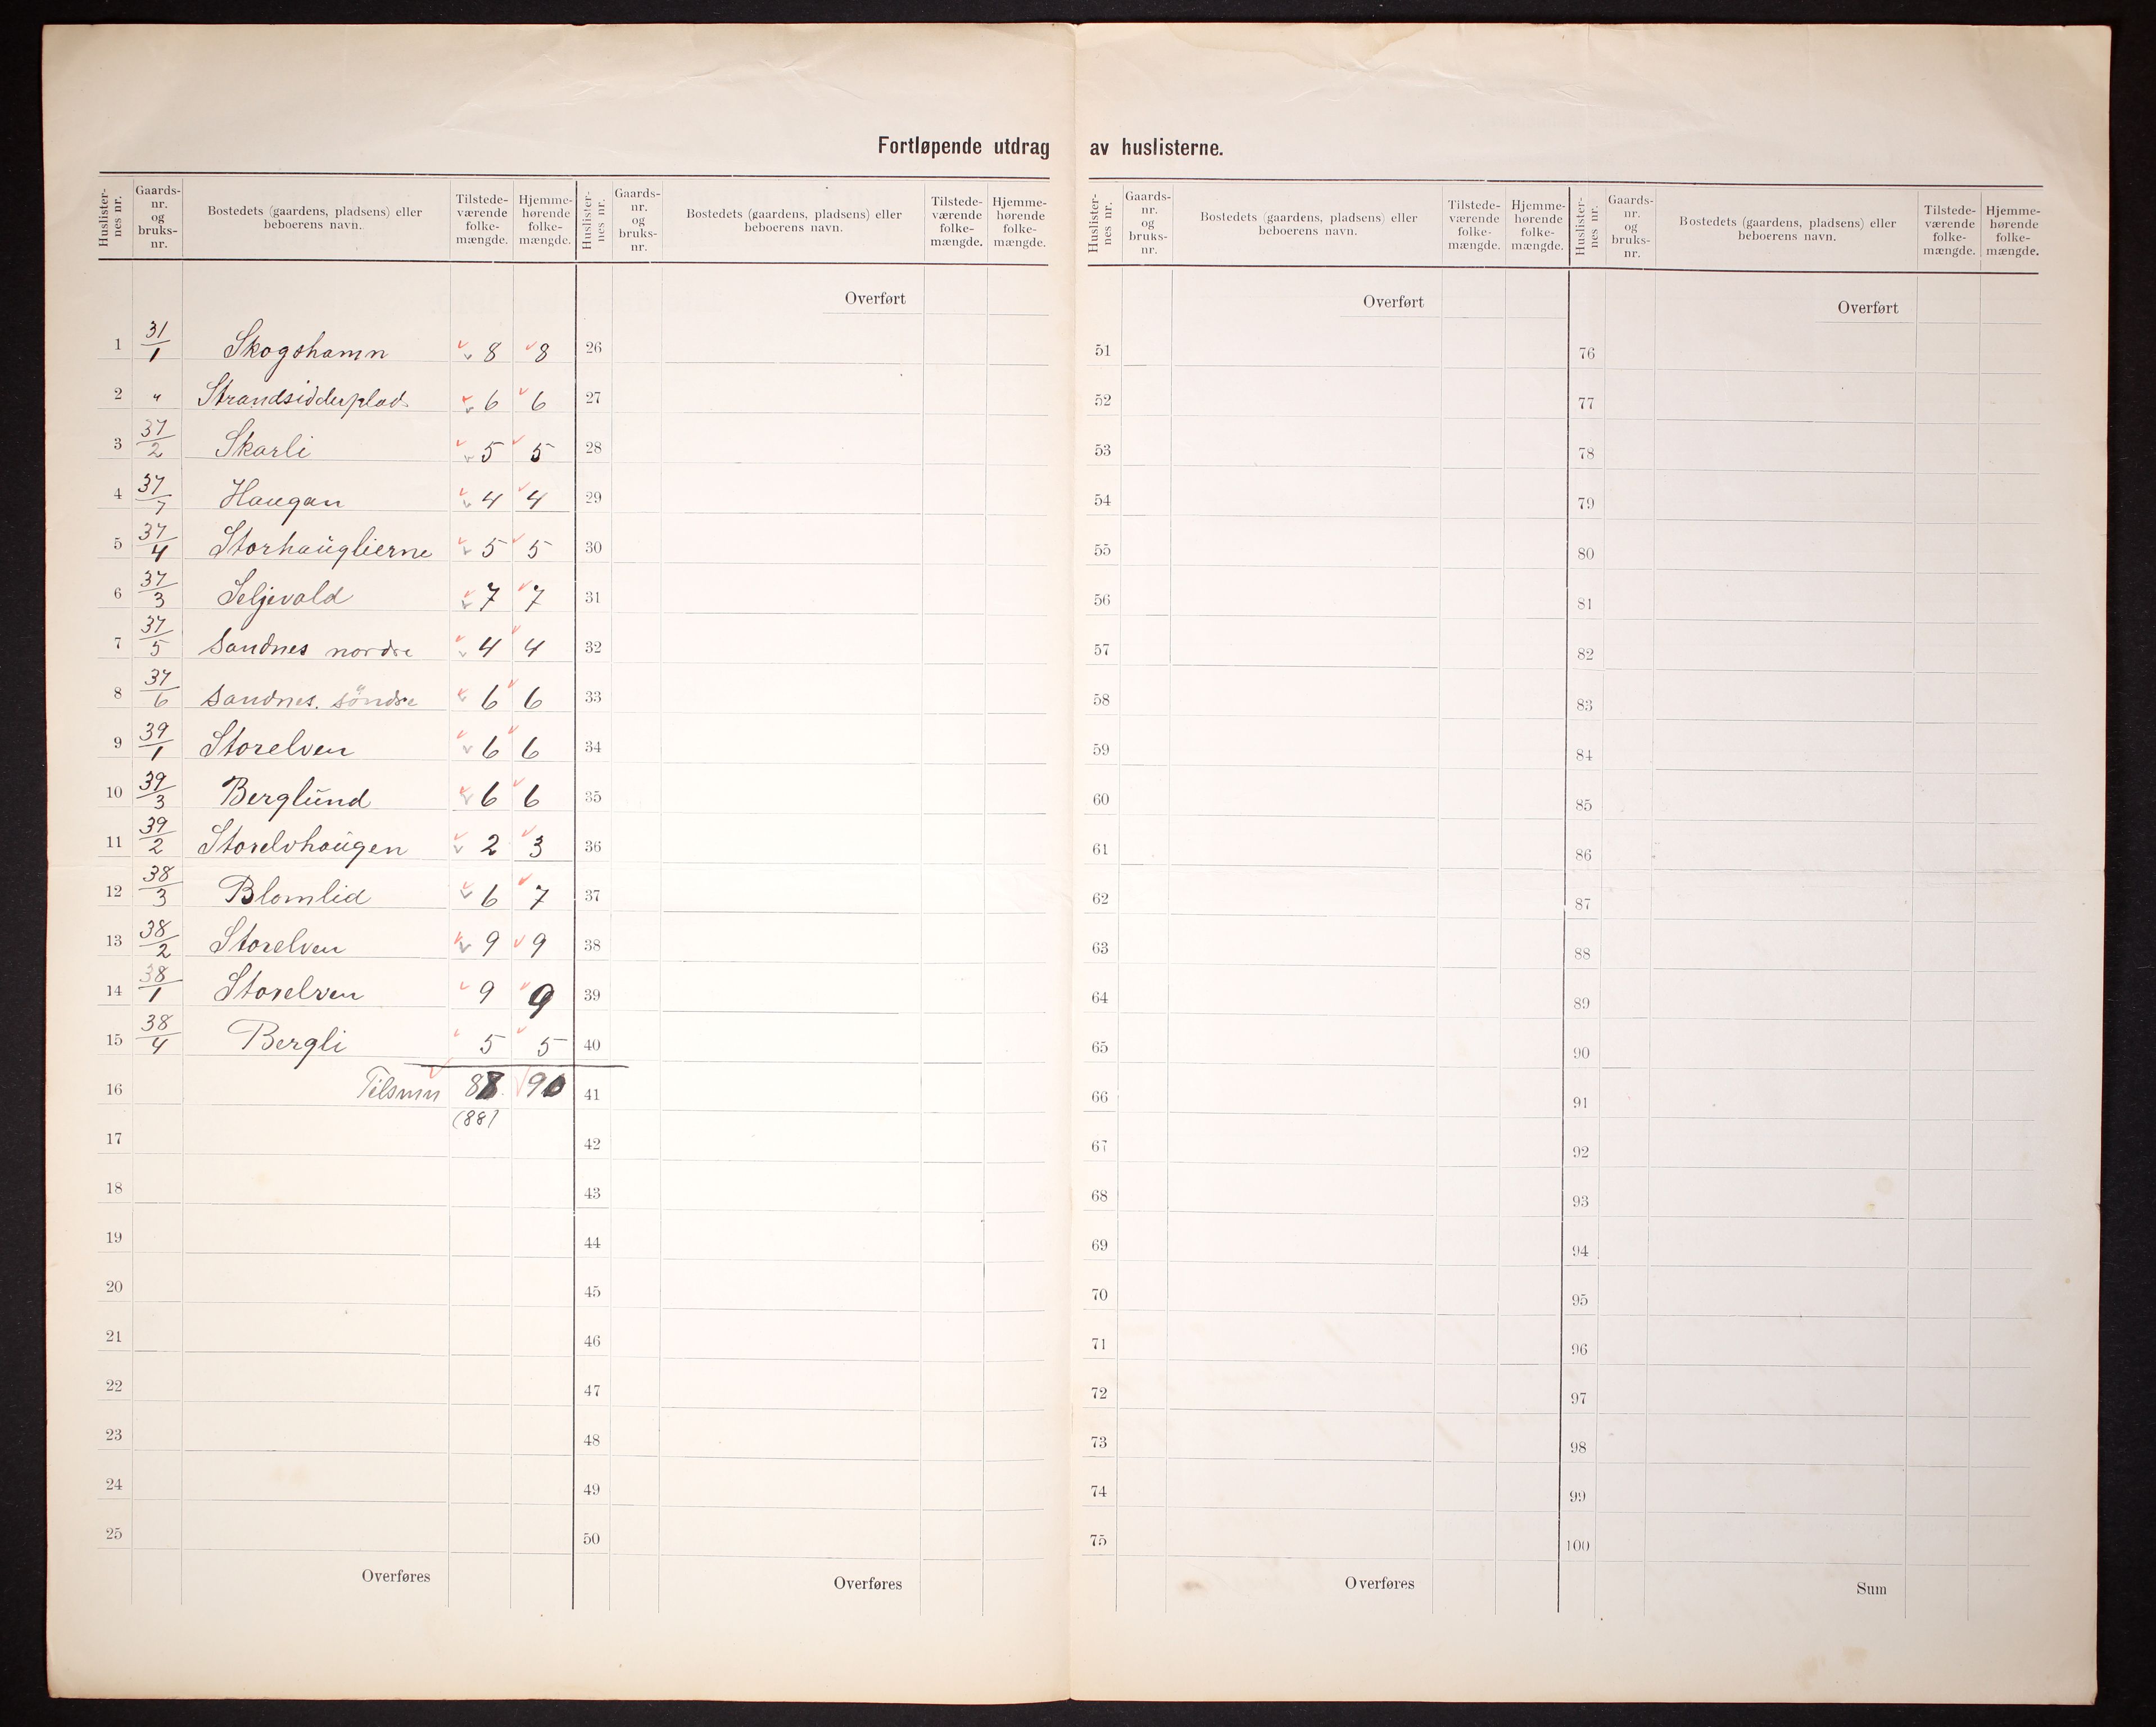 Fortløpende utdrag av huslisterne.
Huslister-nes nr. | Gaards-nr. og bruks-nr. | Bostedets (gaardens, pladsens) eller beboerens navn. | Tilstede-værende folke-mængde. | Hjemme-hørende folke-mængde.
1 31/1 Skogshamn 8 8
2 " Strandsidderplad. 6 6
3 37/2 Skarli 5 5
4 37/7 Haugan 4 4
5 37/4 Storhaüglierne 5 5
6 37/3 Seljevold 7 7
7 37/5 Sandnes nordre 4 4
8 37/6 Sandnes. söndre 6 6
9 39/1 Storelven 6 6
10 39/3 Berglünd 6 6
11 39/2 Storelvhaügen 2 3
12 38/3 Blomlid 6 7
13 38/2 Storelven 9 9
14 38/1 Storelven 9 9
15 38/4 Bergli 5 5
16 Tilsmn 88 90
(88)
17
18
19
20
21
22
23
24
25
Overføres
Huslister-nes nr. | Gaards-nr. og bruks-nr. | Bostedets (gaardens, pladsens) eller beboerens navn. | Tilstede-værende folke-mængde. | Hjemme-hørende folke-mængde.
Overført
26
27
28
29
30
31
32
33
34
35
36
37
38
39
40
41
42
43
44
45
46
47
48
49
50
Overføres
Huslister-nes nr. | Gaards-nr. og bruks-nr. | Bostedets (gaardens, pladsens) eller beboerens navn. | Tilstede-værende folke-mængde. | Hjemme-hørende folke-mængde.
Overført
51
52
53
54
55
56
57
58
59
60
61
62
63
64
65
66
67
68
69
70
71
72
73
74
75
Overføres
Huslister-nes nr. | Gaards-nr. og bruks-nr. | Bostedets (gaardens, pladsens) eller beboerens navn. | Tilstede-værende folke-mængde. | Hjemme-hørende folke-mængde.
Overført
76
77
78
79
80
81
82
83
84
85
86
87
88
89
90
91
92
93
94
95
96
97
98
99
100
Sum